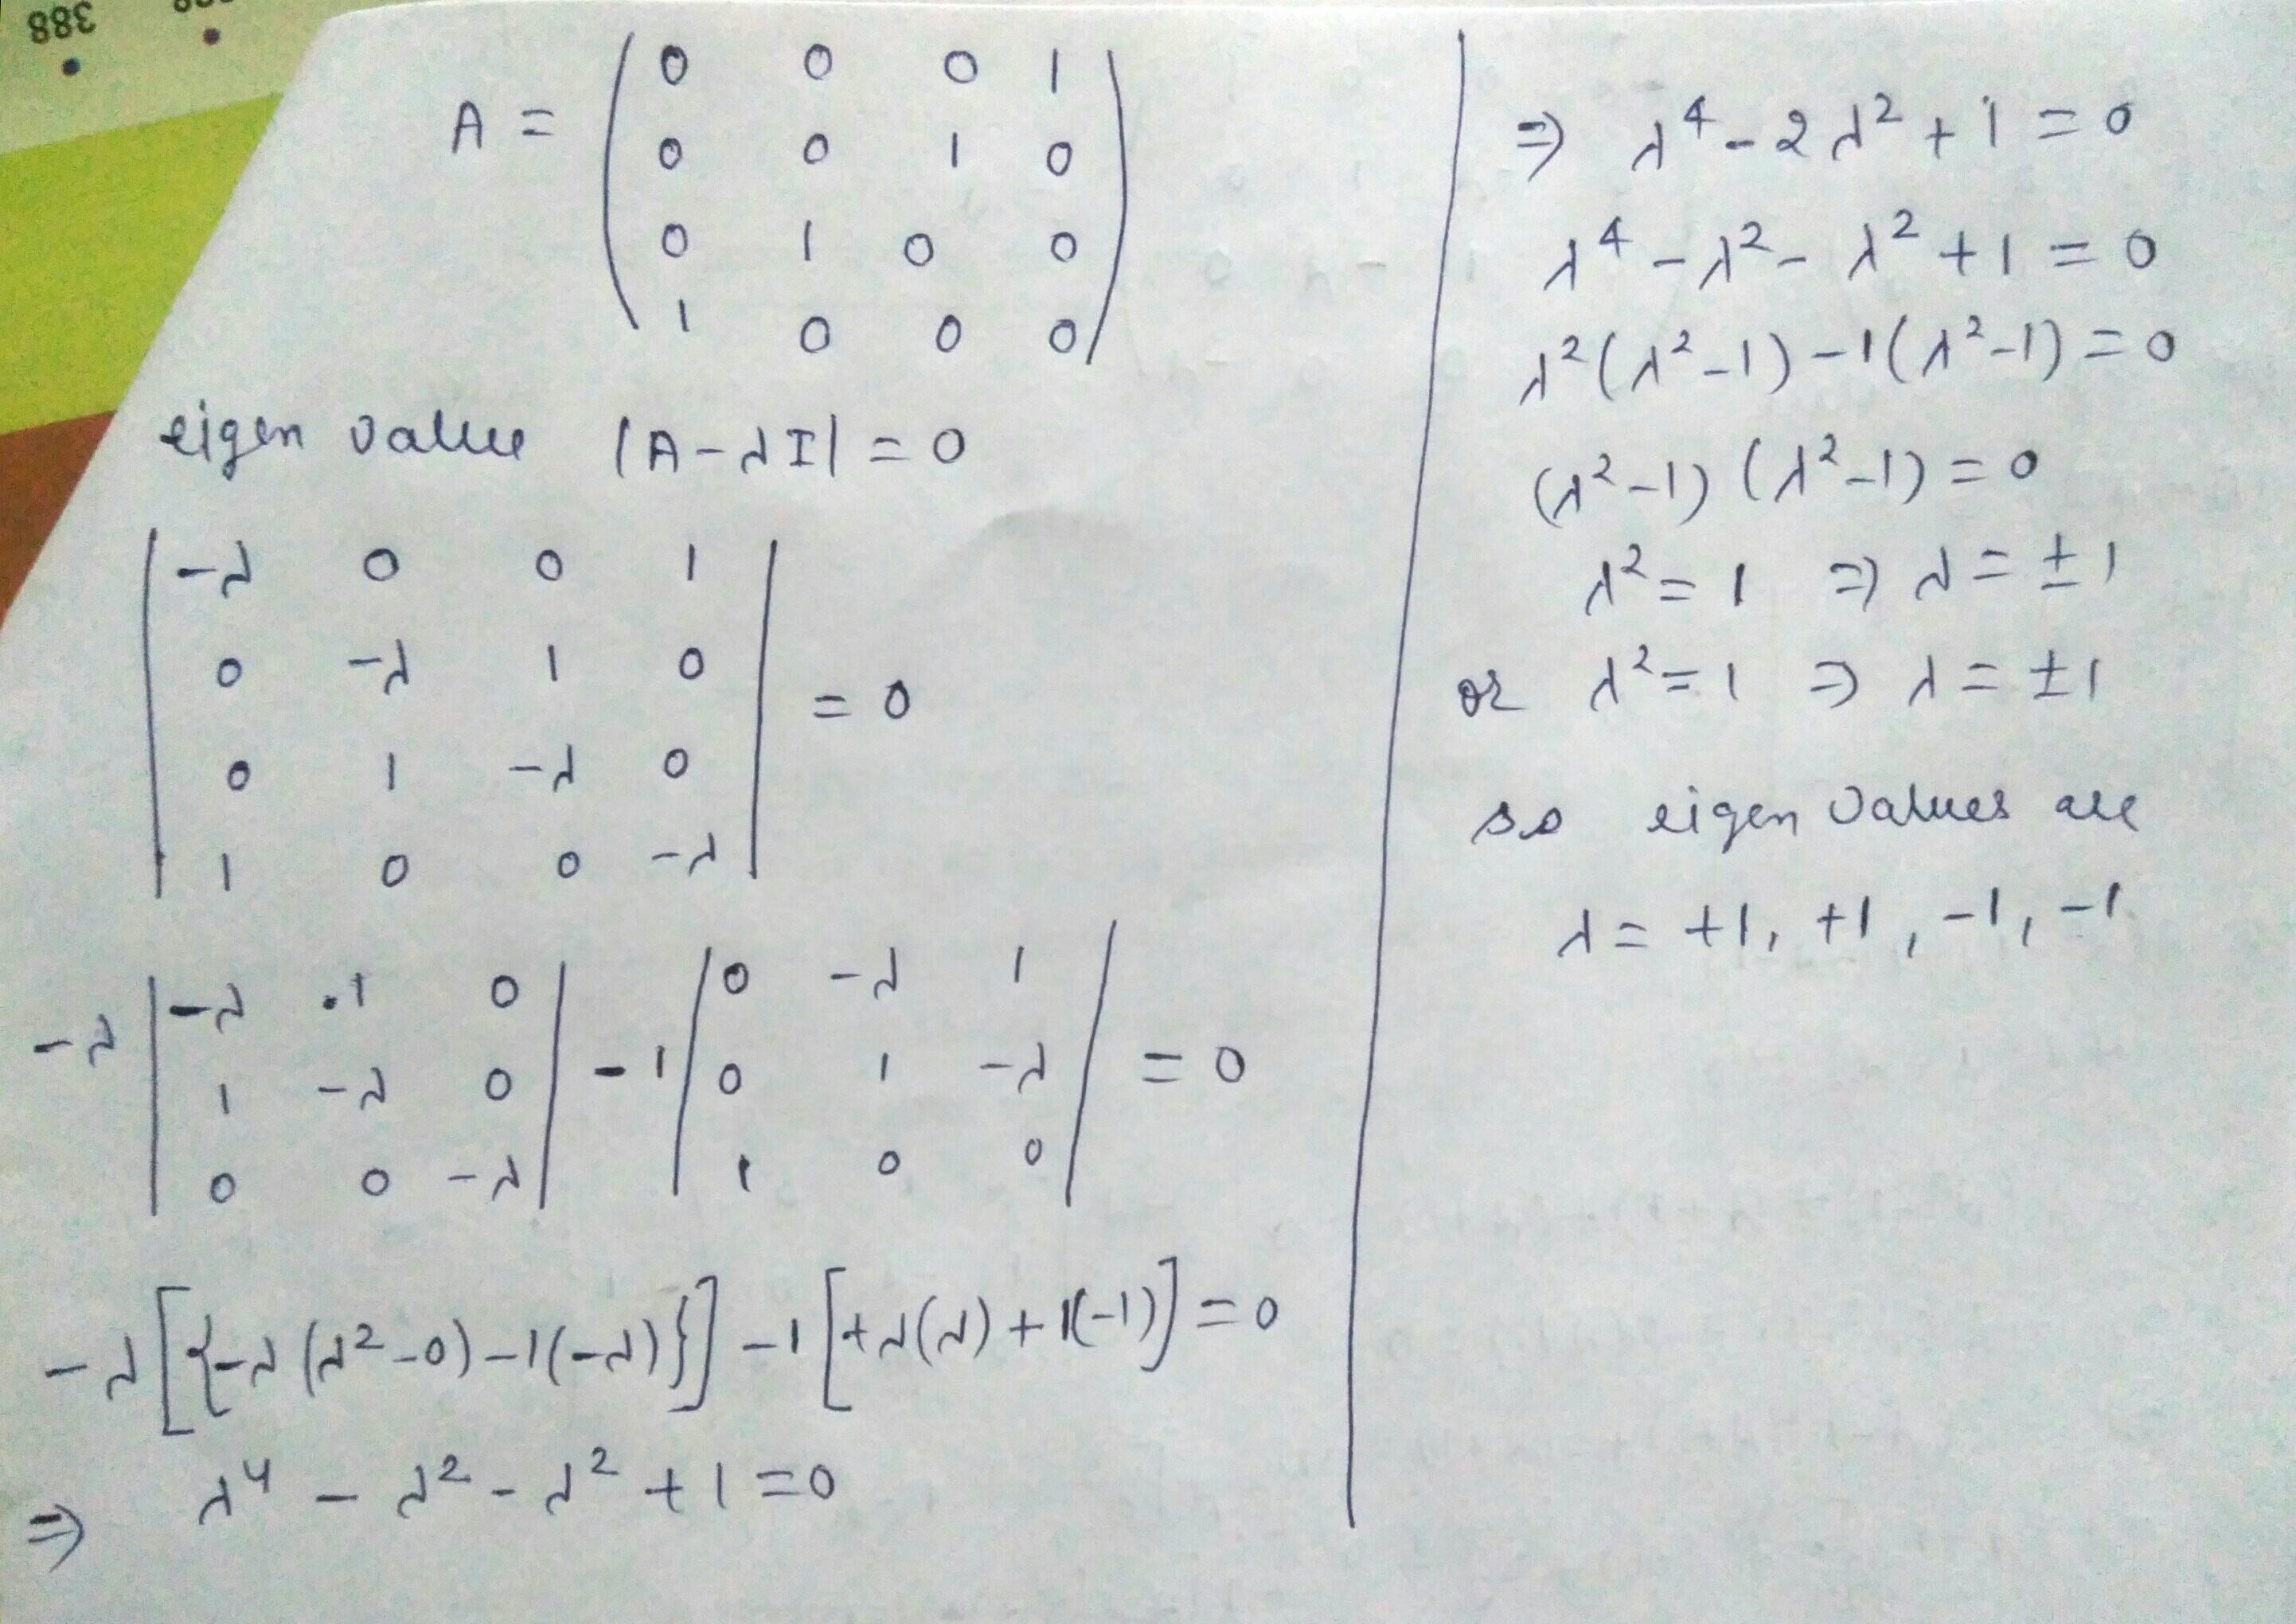 388
A = ( 0 0 0 1
0 0 1 0
0 1 0 0
1 0 0 0 )
eigen value |A-λI| = 0
| -λ 0 0 1
0 -λ 1 0
0 1 -λ 0
1 0 0 -λ | = 0
-λ | -λ .1 0
1 -λ 0
0 0 -λ | -1 | 0 -λ 1
0 1 -λ
1 0 0 | = 0
-λ[{-λ(λ²-0)-1(-λ)}] -1[+λ(λ)+1(-1)] = 0
⇒ λ⁴ - λ² - λ² + 1 = 0
⇒ λ⁴ - 2λ² + 1 = 0
λ⁴ - λ² - λ² + 1 = 0
λ²(λ²-1) - 1(λ²-1) = 0
(λ²-1) (λ²-1) = 0
λ² = 1 ⇒ λ = ±1
or λ² = 1 ⇒ λ = ±1
so eigen values are
λ = +1, +1, -1, -1